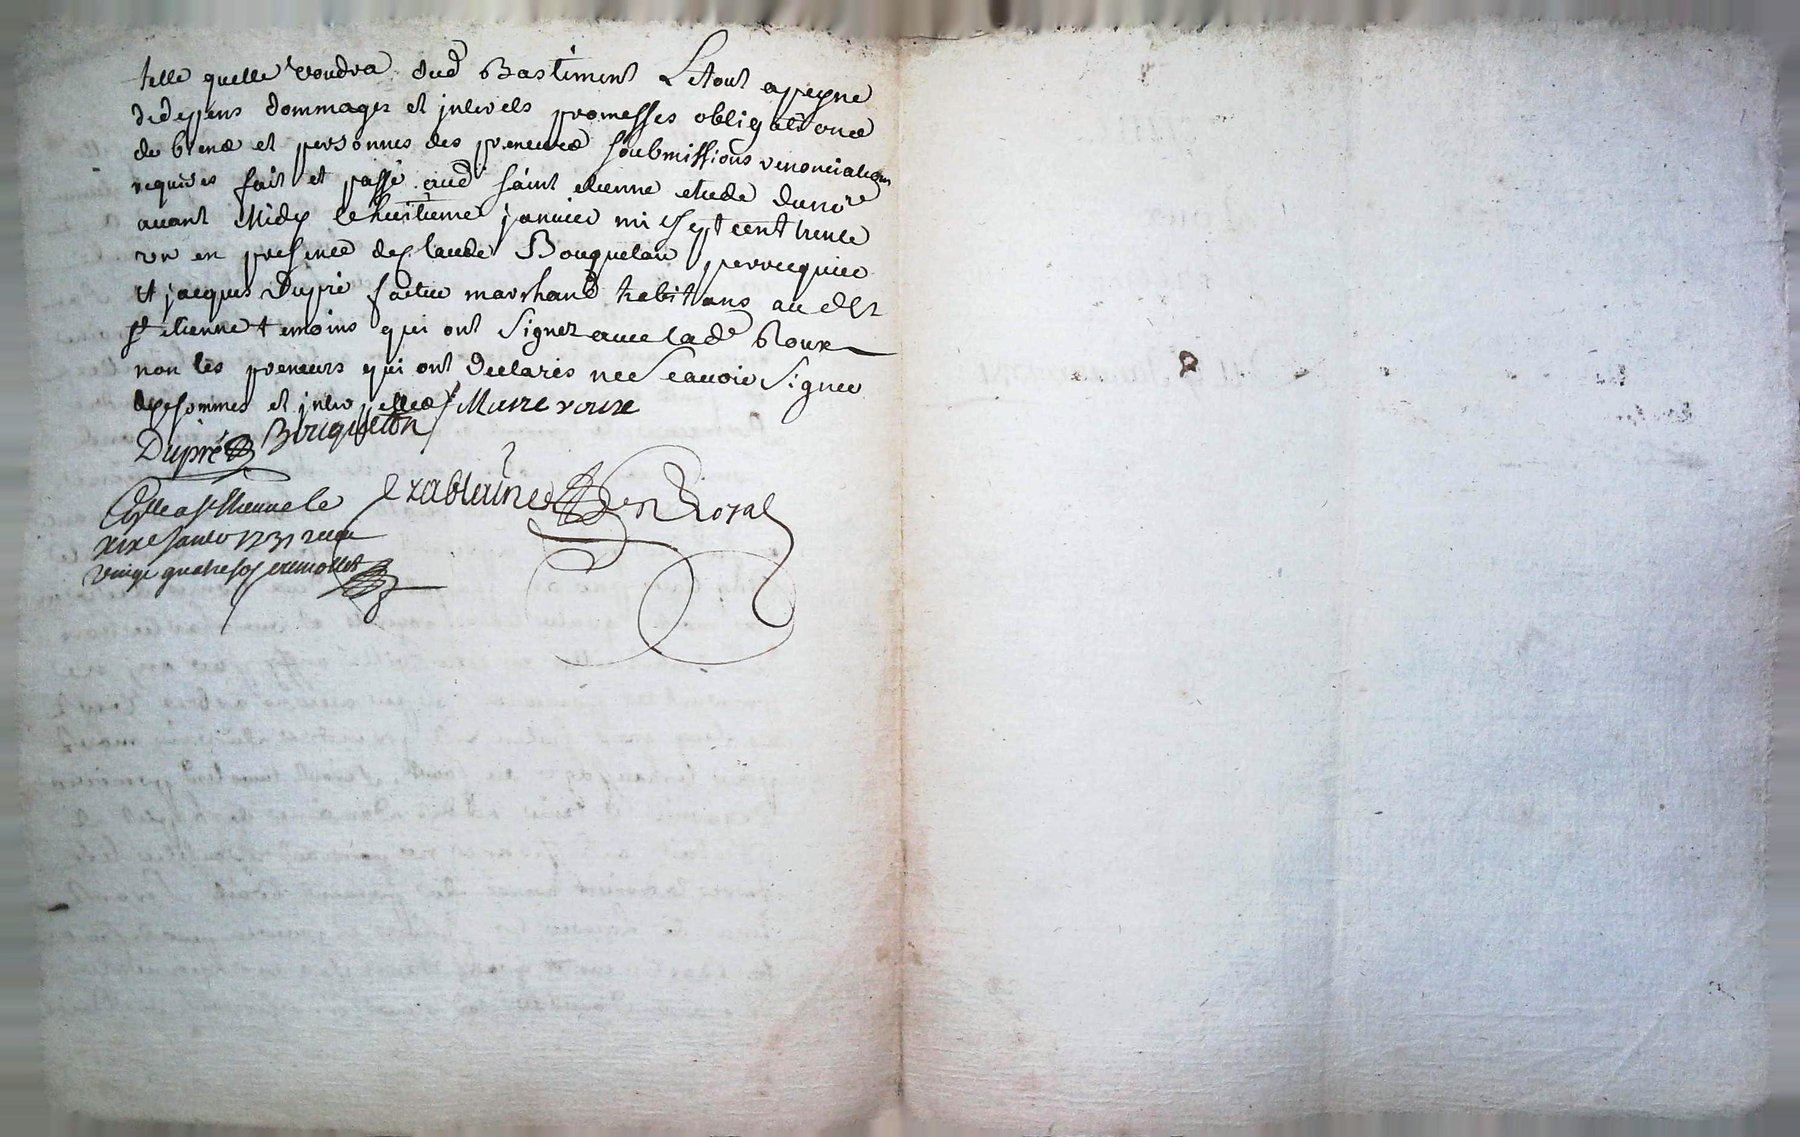 telle quelle voudra dud Bastiment Letout apeyne
dedepens dommages et jnterels promesses obligations
de biens et personnes des preneurs soubmissions renonciations
requises fait et passé aud saint etienne etude du no.re
avant Midy le huitieme janvier mil sept cent trente
un en presence de Claude Bouqueton perruquier
et jacques Dupré facteur marchand habitans aud
st etienne temoins qui ont signez avec lad Roux
non les preneurs qui ont declarés ne scauoir signer
de ce sommes et jnterpellés Marie rouxe
Dupré Bouqueton
Clle a st Etienne le
xixe Janvr 1731 recu
vingt quatre sols
Royal